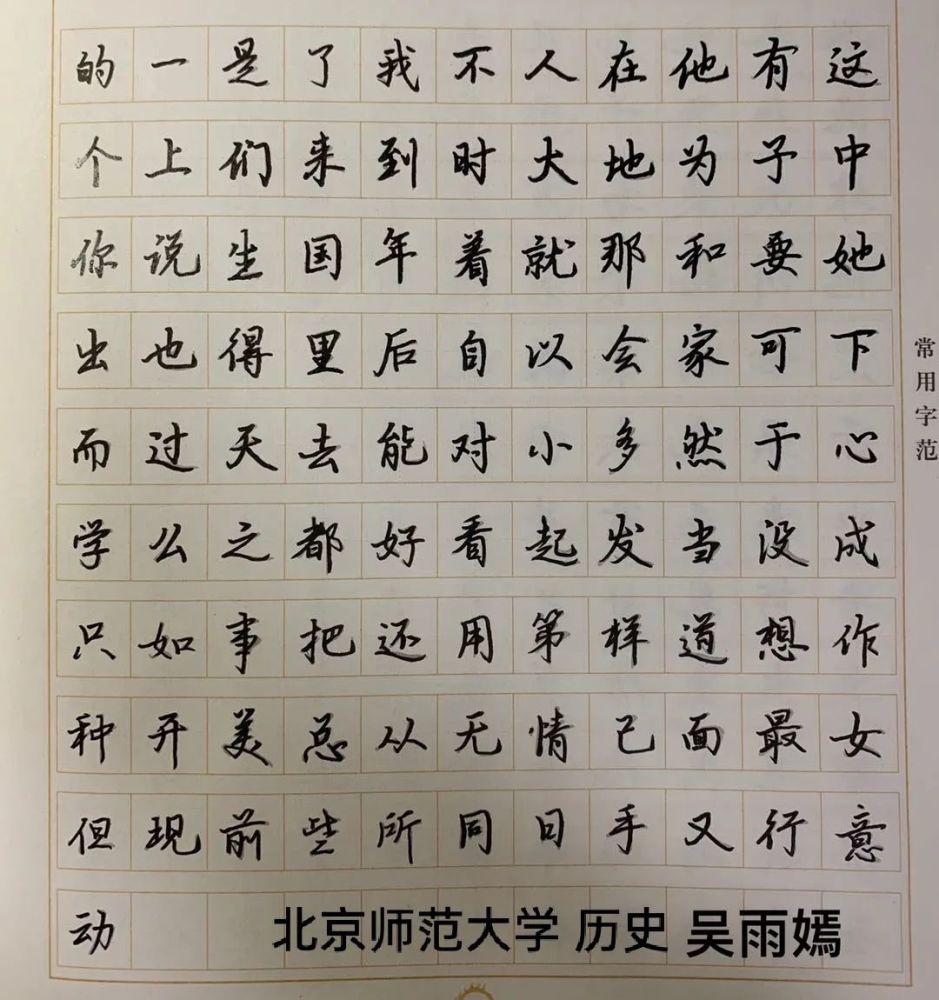 的一是了我不人在他有这
个上们来到时大地为子中
你说生国年着就那和要她
出也得里后自以会家可下
而过天去能对小多然于心
学么之都好看起发当没成
只如事把还用第样道想作
种开美总从无情己面最女
但现前些所同日手又行意
动
北京师范大学 历史 吴雨嫣
常用字范